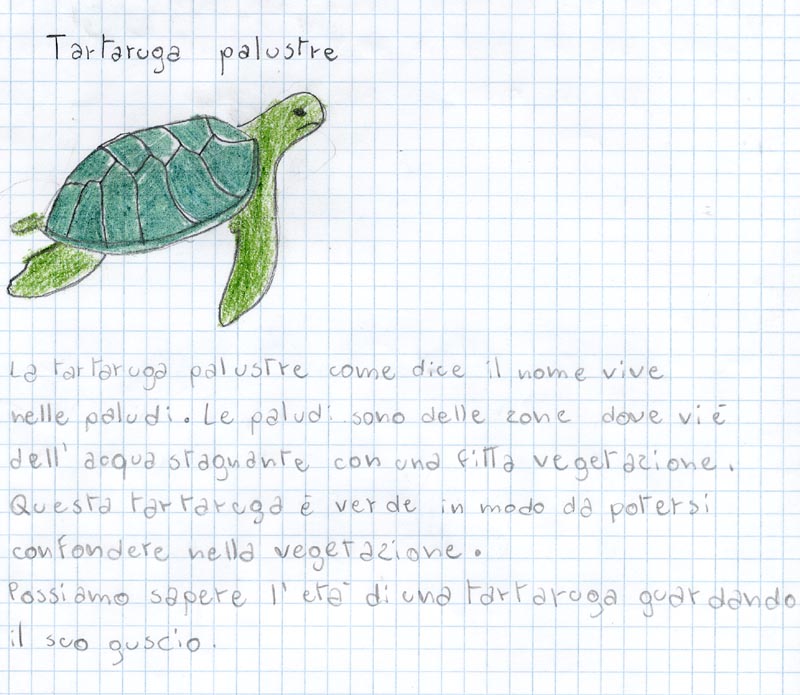 Tartaruga palustre
La tartaruga palustre come dice il nome vive
nelle paludi. Le paludi sono delle zone dove vi è
dell'acqua stagnante con una fitta vegetazione.
Questa tartaruga è verde in modo da potersi
confondere nella vegetazione.
Possiamo sapere l'età di una tartaruga guardando
il suo guscio.